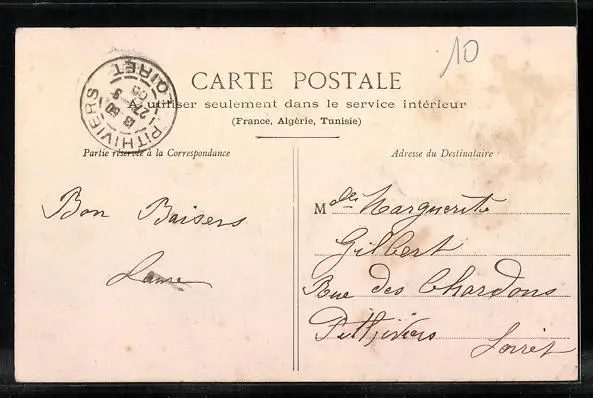 10
CARTE POSTALE
A utiliser seulement dans le service intérieur
(France, Algérie, Tunisie)
PITHIVIERS
LOIRET
27 -9
05
Partie réservée à la Correspondance
Adresse du Destinataire
Bon Baisers
Laure
Mdle Marguerite
Gilbert
Rue des Chardons
Pithiviers
Loiret